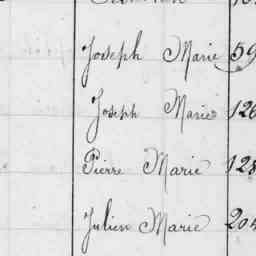 Joseph Marie 59
Joseph Marie 126
Pierre Marie 128
Julien Marie 204